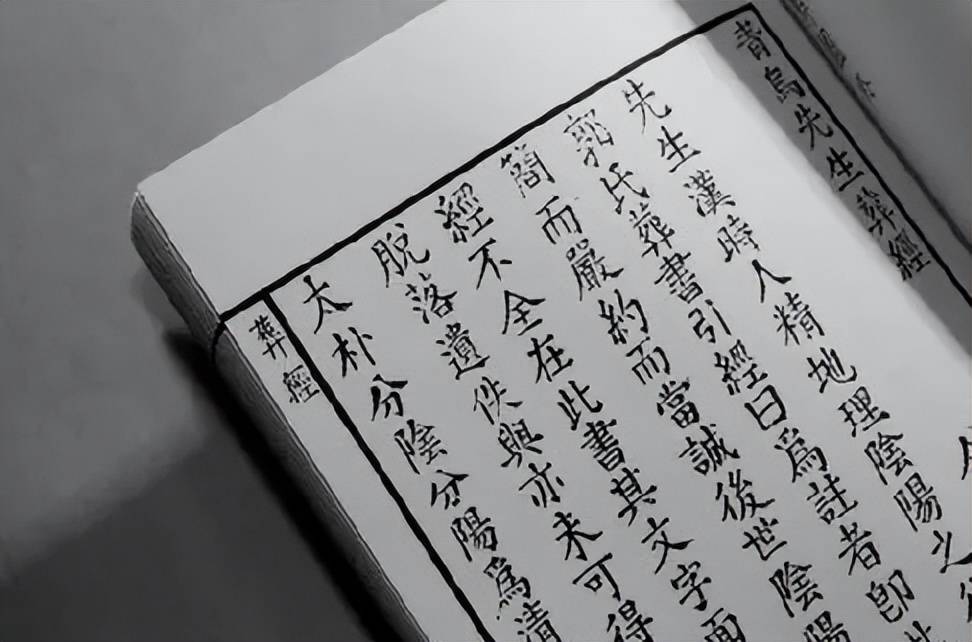 青烏先生葬經
先生漢時人精地理陰陽之
郭氏葬書引經曰爲註者卽此
簡而嚴約而當誠後世陰陽
經不全在此書其文字面
脫落遺佚與亦未可得
太朴分陰分陽爲清
葬經